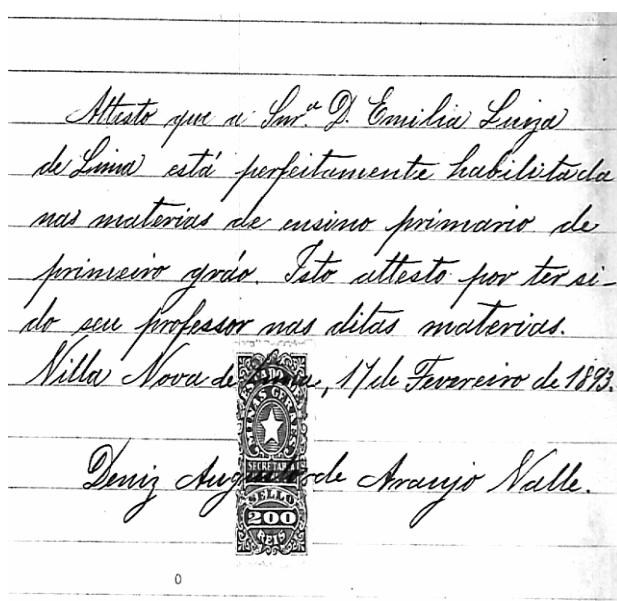 Attesto que a Snr.ª D. Emilia Luiza
de Lima está perfeitamente habilitada
nas materias de ensino primario de
primeiro gráo. Isto attesto por ter si-
do seu professor nas ditas materias.
Villa Nova de Lima, 17 de Fevereiro de 1893.
ESTADO DE
MINAS GERAES
SECRETARIA
Deniz Augusto de Araujo Valle.
SELLO
200
REIS
0